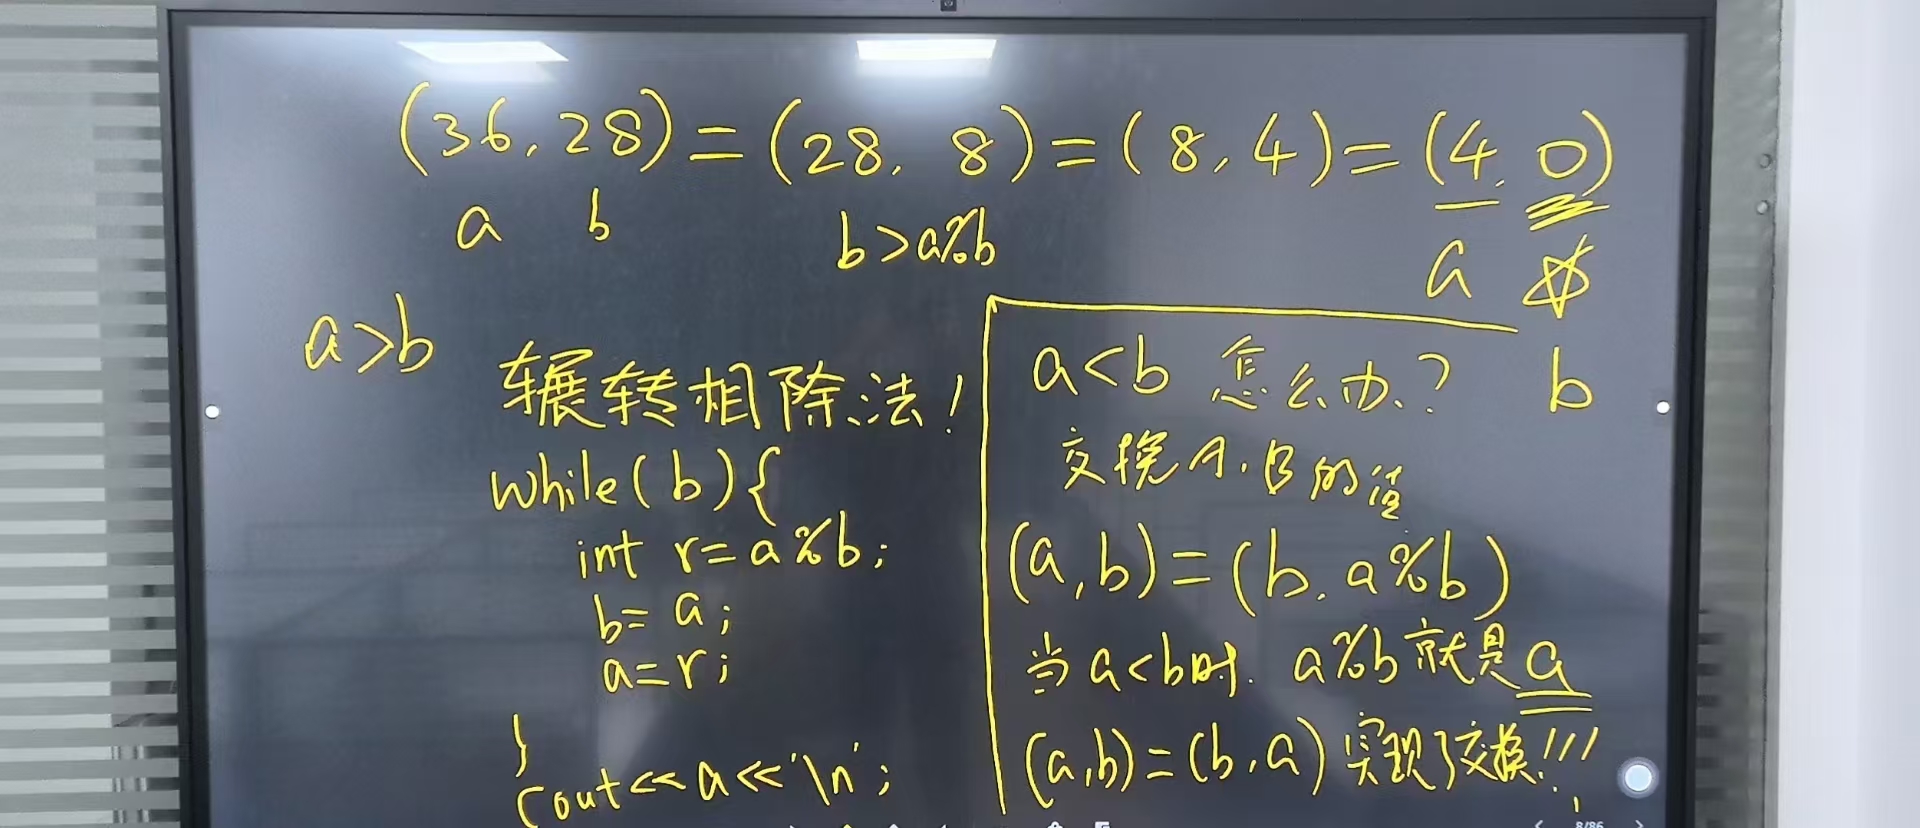 (36, 28) = (28, 8) = (8, 4) = (4, 0)
a b
b>a%b
a ☆
b
a>b
辗转相除法!
while(b){
int r=a%b;
b=a;
a=r;
}
cout<<a<<'\n';
a<b 怎么办?
交换A、B的值
(a,b)=(b,a%b)
当a<b时. a%b就是a
(a,b)=(b,a)实现了交换!!!
8/86